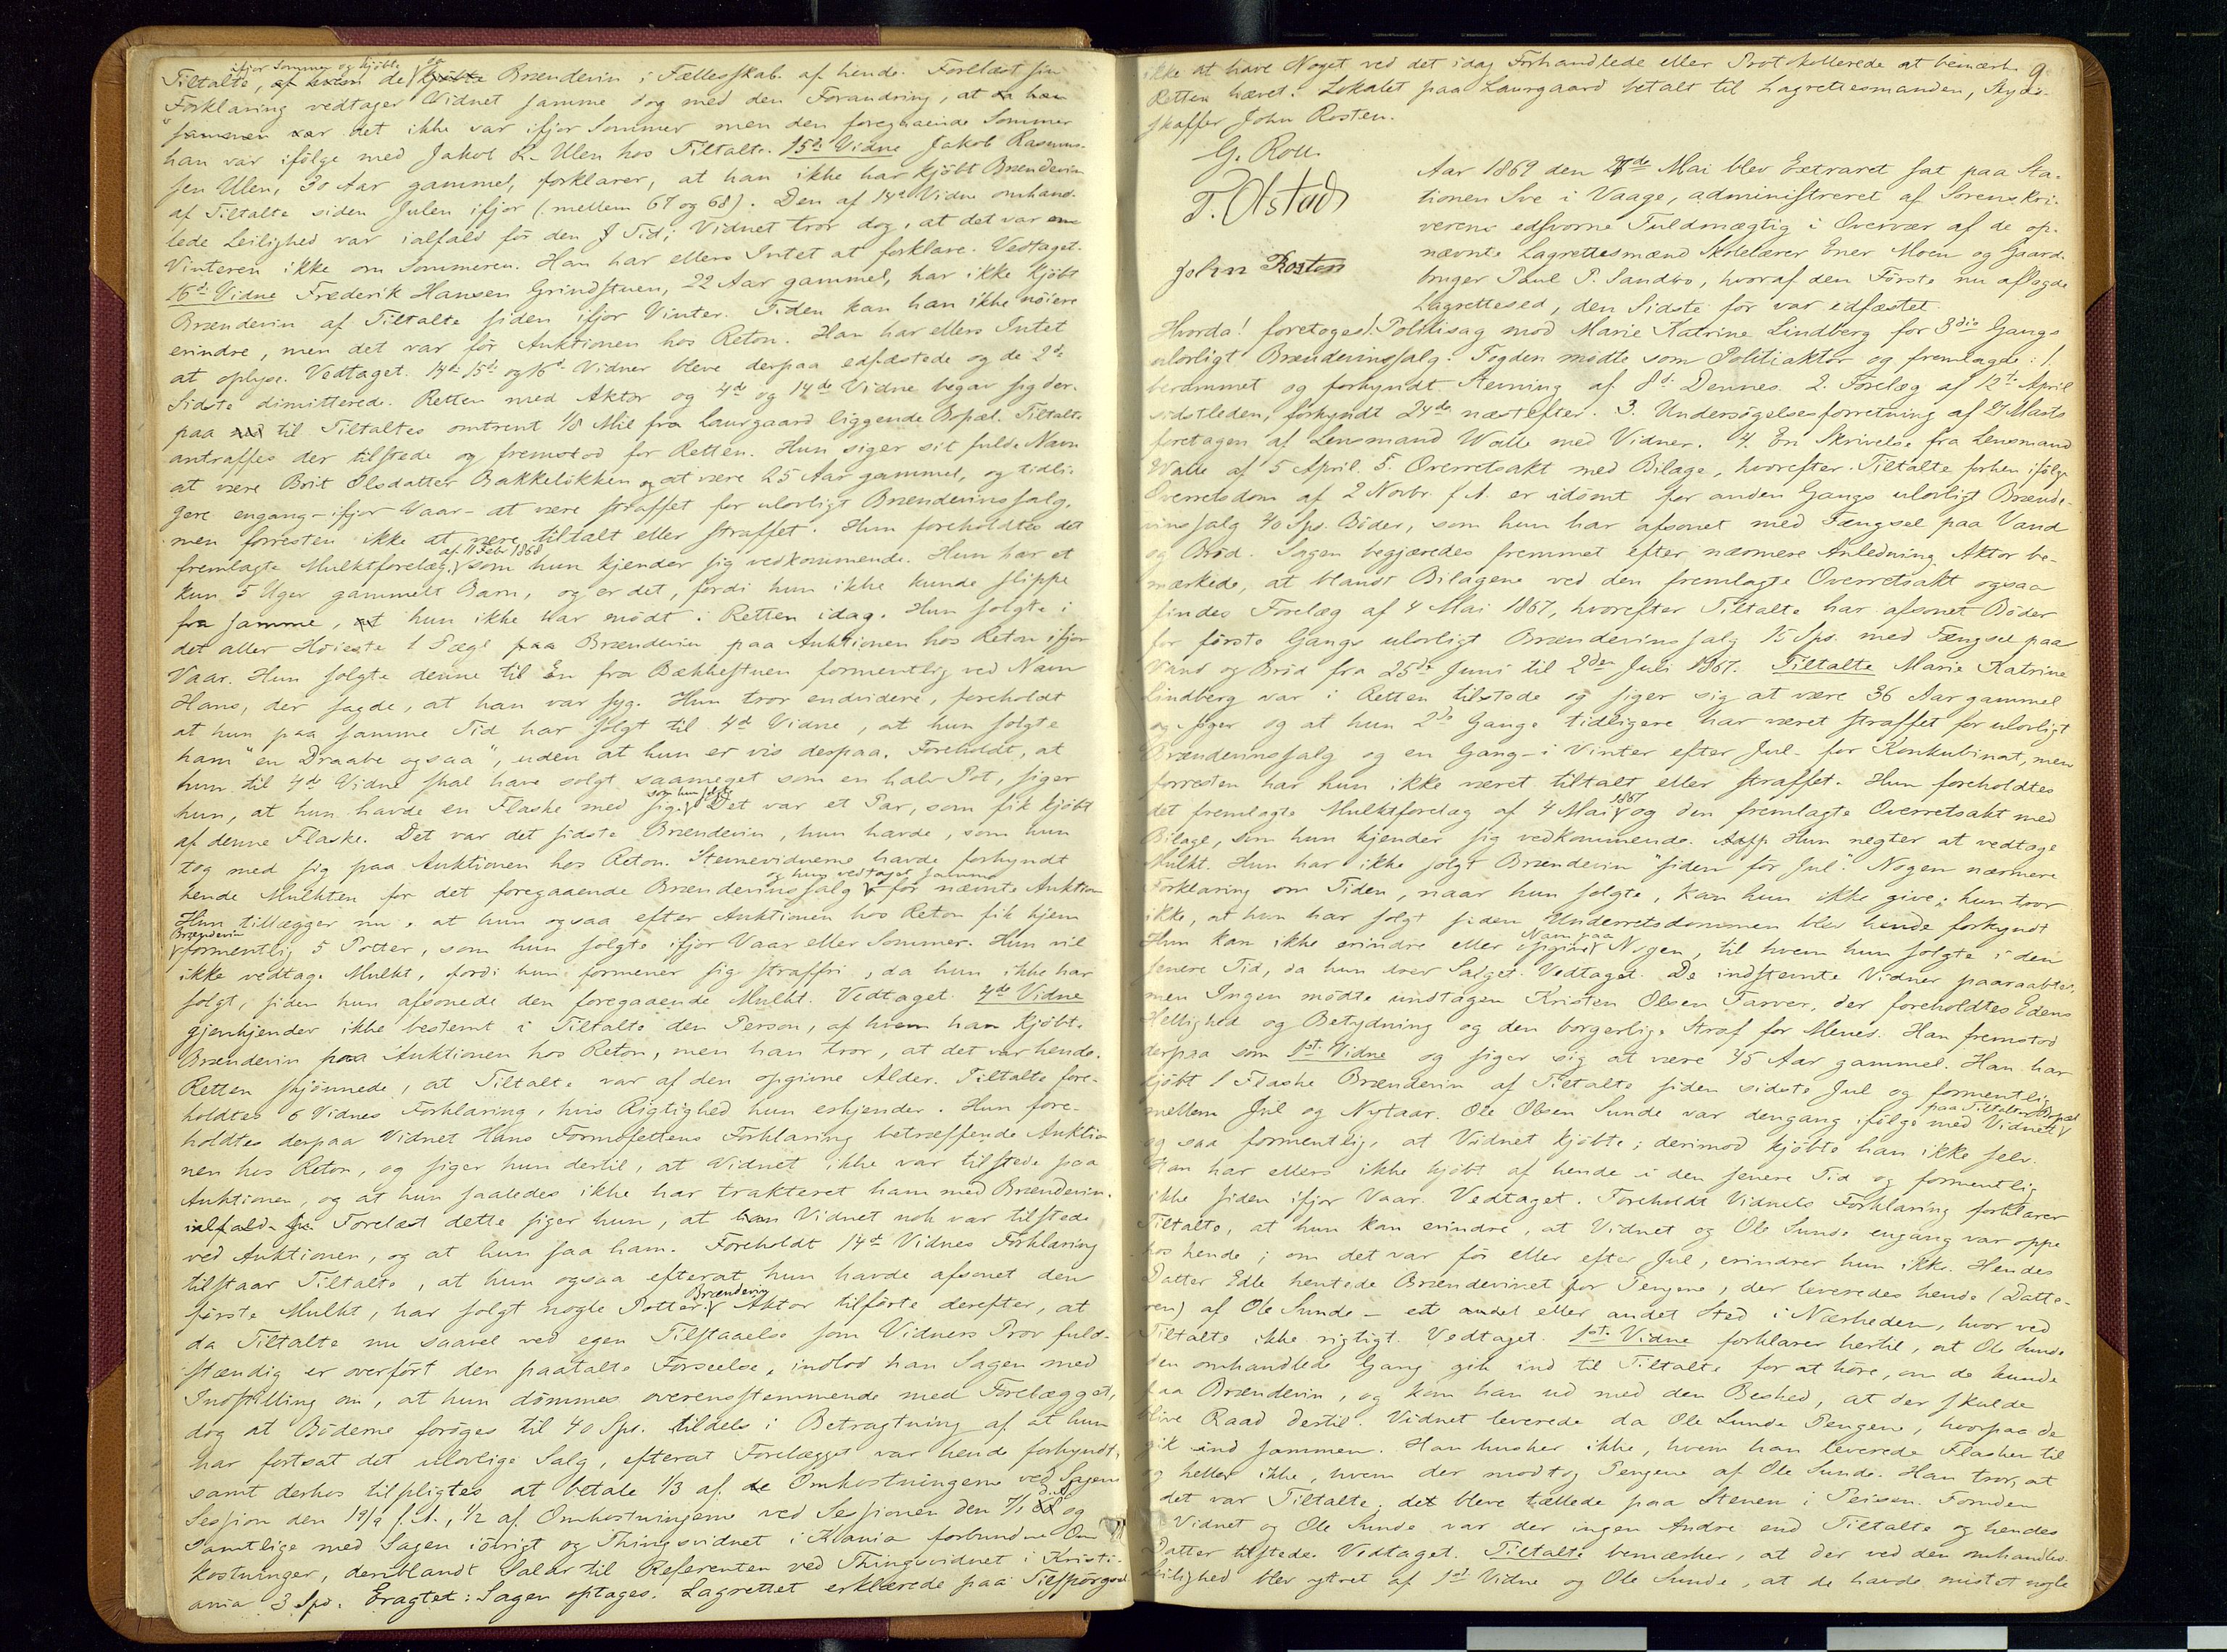 ifjor Sommer og kjöbte
Tiltalte, af hvem de kjöbte Brændevin i Fællesskab af hende. Forelæst sin
Forklaring vedtager Vidnet samme dog med den Forandring, at da han
sammen var det ikke var ifjor Sommer men den foregaaende Sommer
han var ifölge med Jakob R. Ulen hos Tiltalte. 15de Vidne Jakob Rasmus-
sen Ulen, 30 Aar gammel, forklarer, at han ikke har kjöbt Brændevin
af Tiltalte siden Julen ifjor (: mellem 67 og 68). Den af 14de Vidne omhand-
lede Leilighed var ialfald för den Tid; Vidnet tror dog, at det var om
Vinteren ikke om Sommeren. Han har ellers Intet at forklare. Vedtaget.
16de Vidne Frederik Hansen Grindstuen, 22 Aar gammel, har ikke kjöbt
Brændevin af Tiltalte siden ifjor Vinter. Tiden kan han ikke nöiere
erindre, men det var för Auktionen hos Reton. Han har ellers Intet
at oplyse. Vedtaget. 14de 15de og 16de Vidner bleve derpaa edfæstede og de 2de
Sidste dimitterede. Retten med Aktor og 4de og 14de Vidne begav sig der-
paa til Tiltaltes omtrent 1/8 Mil fra Laurgaard liggende Bopæl. Tiltalte
antraffes der tilstede og fremstod for Retten. Hun siger sit fulde Navn
at være Brit Olsdatter Bakkelökken og at være 25 Aar gammel, og tidli-
gere engang - ifjor Vaar - at være straffet for ulovligt Brændevinssalg,
men forresten ikke at være tiltalt eller straffet. Hun foreholdtes det
af 11 Febr 1868
fremlagte Mulktforelæg, som hun kjender sig vedkommende. Hun har et
kun 5 Uger gammelt Barn, og er det, fordi hun ikke kunde slippe
fra samme, at hun ikke har mödt i Retten idag. Hun solgte i
det aller Höieste 1 Pægl Brændevin paa Auktionen hos Reton ifjor
Vaar. Hun solgte denne til En fra Bækkestuen formentlig ved Navn
Hans, der sagde, at han var syg. Hun tror endvidere, foreholdt
at hun paa samme Tid har solgt til 4de Vidne, at hun solgte
ham "en Draabe ogsaa", uden at hun er vis derpaa. Foreholdt, at
hun til 4de Vidne skal have solgt saameget som en halv Pot, siger
som hun solgte
hun, at hun havde en Flaske med sig. Det var et Par, som fik kjöbt
af denne Flaske. Det var det sidste Brændevin, hun havde, som hun
tog med sig paa Auktionen hos Reton. Stevnevidnerne havde forkyndt
og hun vedtaget samme
hende Mulkten for det foregaaende Brændevinssalg för nævnte Auktion
Hun tillægger nu, at hun ogsaa efter Auktionen hos Reton fik hjem
Brændevin
formentlig 5 Potter, som hun solgte ifjor Vaar eller Sommer. Hun vil
ikke vedtage Mulkt, fordi hun formener sig straffri, da hun ikke har
solgt, siden hun afsonede den foregaaende Mulkt. Vedtaget. 4de Vidne
gjenkjender ikke bestemt i Tiltalte den Person, af hvem han kjöbte
Brændevin paa Auktionen hos Reton, men han tror, at det var hende.
Retten skjönnede, at Tiltalte var af den opgivne Alder. Tiltalte fore-
holdtes 6 Vidnes Forklaring, hvis Rigtighed hun erkjender. Hun fore-
holdtes derpaa Vidnet Hans Formofettens Forklaring betræffende Auktio-
nen hos Reton, og siger hun dertil, at Vidnet ikke var tilstede paa
Auktionen, og at hun saaledes ikke har trakteret ham med Brændevin.
ialfald Forelæst dette siger hun, at Vidnet nok var tilstede
ved Auktionen, og at hun saa ham. Foreholdt 14de Vidnes Forklaring
tilstaar Tiltalte, at hun ogsaa efterat hun havde afsonet den
Brændevin
förste Mulkt, har solgt nogle Potter. Aktor tilförte derefter, at
da Tiltalte nu saavel ved egen Tilstaaelse som Vidners Prov fuld-
stændig er overfört den paatalte Forseelse, indlod han Sagen med
Indstilling om, at hun dömmes overensstemmende med Forelægget,
dog at Böderne foröges til 40 Spd. tildels i Betragtning af at hun
har fortsat det ulovlige Salg, efterat Forelægget var hende forkyndt,
samt derhos tilpligtes at betale 1/3 af de Omkostningerne ved Sagens
Session den 19/9 f. A., 1/2 af Omkostningerne ved Sessionen den 7/1 og
samtlige med Sagen iövrigt og Thingsvidnet i Kfania forbundne Om-
kostninger, deriblandt Salær til Referenten ved Thingsvidnet i Kristi-
ania 3 Spd. Eragtet: Sagen optages. Lagrettet erklærede paa Tilspörgsel
9
ikke at have Noget ved det idag Forhandlede eller Protokollerede at bemærke
Retten hævet. Lokalet paa Laurgaard betalt til Lagrettesmanden, Skyds-
skaffer John Rosten.
G. Roll.
T. Olstad
John Rosten
Aar 1869 den 27de Mai blev Extraret sat paa Sta-
tionen Sve i Vaage, administreret af Sorenskri-
verens edsvorne Fuldmægtig i Overvær af de op-
nævnte Lagrettesmænd Skolelærer Ener Moen og Gaard-
bruger Paul P. Sandbo, hvoraf den Förste nu aflagde
Lagrettesed, den Sidste för var edfæstet.
Hvorda! foretoges! Politisag mod Marie Katrine Lindberg for 3die Gangs
ulovligt Brændevinssalg. Fogden mödte som Politiaktor og fremlagde: 1.
berammet og forkyndt Stevning af 8de Dennes. 2. Forelæg af 12te April
sidstleden, forkyndt 24de næstefter. 3. Undersögelsesforretning af 27 Marts
foretagen af Lensmand Walle med Vidner. 4. En Skrivelse fra Lensmand
Walle af 5 April. 5. Overretsakt med Bilage, hvorefter Tiltalte forhen ifölge
Overretsdom af 2 Novbr. f. A. er idömt for anden Gangs ulovligt Brænde-
vinssalg 40 Spd. Böder, som hun har afsonet med Fængsel paa Vand
og Bröd. Sagen begjæredes fremmet efter nærmere Anledning. Aktor be-
mærkede, at blandt Bilagene ved den fremlagte Overretsakt ogsaa
findes Forelæg af 4 Mai 1867, hvorefter Tiltalte har afsonet Böder
for förste Gangs ulovligt Brændevinssalg 15 Spd. med Fængsel paa
Vand og Bröd fra 25de Juni til 2den Juli 1867. Tiltalte Marie Katrine
Lindberg var i Retten tilstede og siger sig at være 36 Aar gammel
og siger og at hun 2de Gange tidligere har været straffet for ulovligt
Brændevinssalg og en Gang - i Vinter efter Jul - for Konkubinat, men
forresten har hun ikke været tiltalt eller straffet. Hun foreholdtes
1867
det fremlagte Mulktforelæg af 4 Mai og den fremlagte Overretsakt med
Bilage, som hun kjender sig vedkommende. Hun negter at vedtage
Mulkt. Hun har ikke solgt Brændevin "siden för Jul". Nogen nærmere
Forklaring om Tiden, naar hun solgte, kan hun ikke give; hun tror
ikke, at hun har solgt siden Underretsdommen blev hende forkyndt
Navn paa
Hun kan ikke erindre eller opgive Nogen, til hvem hun solgte i den
senere Tid, da hun drev Salget. Vedtaget. De indstevnte Vidner paaraabtes,
men Ingen mödte undtagen Kristen Olsen Tarver, der foreholdtes Edens
Hellighed og Betydning og den borgerlige Straf for Mened. Han fremstod
derpaa som 1ste Vidne og siger sig at være 45 Aar gammel. Han har
kjöbt 1 Flaske Brændevin af Tiltalte siden sidste Jul og formentlig
paa Tiltaltes Bopæl
mellem Jul og Nytaar. Ole Olsen Sunde var dengang ifölge med Vidnet
og saa formentlig, at Vidnet kjöbte; derimod kjöbte han ikke selv.
Han har ellers ikke kjöbt af hende i den senere Tid og formentlig
ikke siden ifjor Vaar. Vedtaget. Foreholdt Vidnets Forklaring forklarer
Tiltalte, at hun kan erindre, at Vidnet og Ole Sunde engang var oppe
hos hende; om det var för eller efter Jul, erindrer hun ikke. Hendes
Datter Edle hentede Brændevinet for Pengene, der leveredes hende (Datte-
ren) af Ole Sunde - et eller andet Sted i Nærheden, hvor ved
Tiltalte ikke rigtigt. Vedtaget. 1ste Vidne forklarer hertil, at Ole Sunde
den omhandlede Gang gik ind til Tiltalte for at höre, om de kunde
faa Brændevin, og kom han ud med den Besked, at der skulde
blive Raad dertil. Vidnet leverede da Ole Sunde Pengene, hvorpaa de
gik ind sammen. Han husker ikke, hvem han leverede Flasken til
og heller ikke, hvem der modtog Pengene af Ole Sunde. Han tror, at
det var Tiltalte; det bleve tællede paa Stenen i Peisen. Foruden
Vidnet og Ole Sunde var der ingen Andre end Tiltalte og hendes
Datter tilstede. Vedtaget. Tiltalte bemærker, at der ved den omhandlede
Leilighed blev ytret af 1ste Vidne og Ole Sunde, at de havde mistet nogle